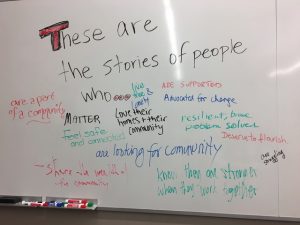 These are
the stories of people
who
live
love &
ARE SUPPORTED
are a part
of a community
MATTER
Love their
homes + their
community
Advocated for change
Feel safe
and connected
resilient, true
problem solvers
Deserve to flourish
are looking for community
are
struggling
know they are stronger
when they work together
community